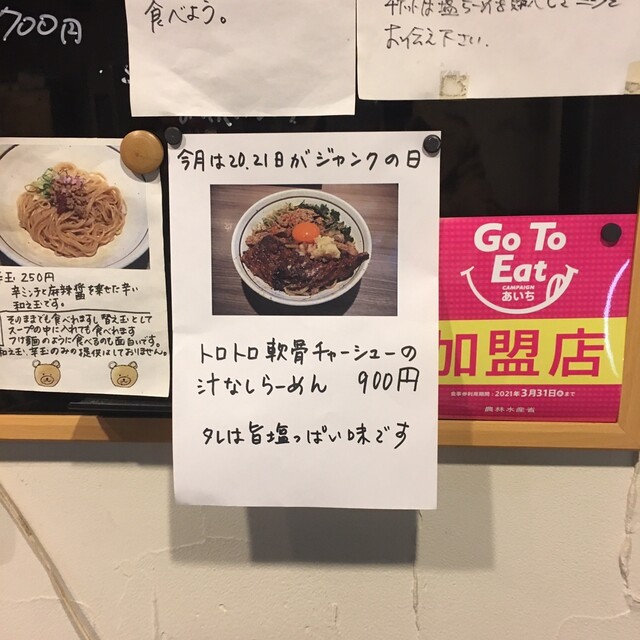 700円
食べよう。
お伝え下さい.
今月は20.21日がジャンクの日
トロトロ軟骨チャーシューの
汁なしらーめん 900円
タレは旨塩っぱい味です
玉 250円
辛ミンチと麻辣醤を乗せた辛い
和え玉です。
そのままでも食べれますし替え玉として
スープの中に入れても食べれます
つけ麺のように食べるのも面白いです。
和え玉、芽玉のみの提供はしておりません。
Go To
Eat
CAMPAIGN
あいち
加盟店
食事券利用期間：2021年3月31日水まで
農林水産省